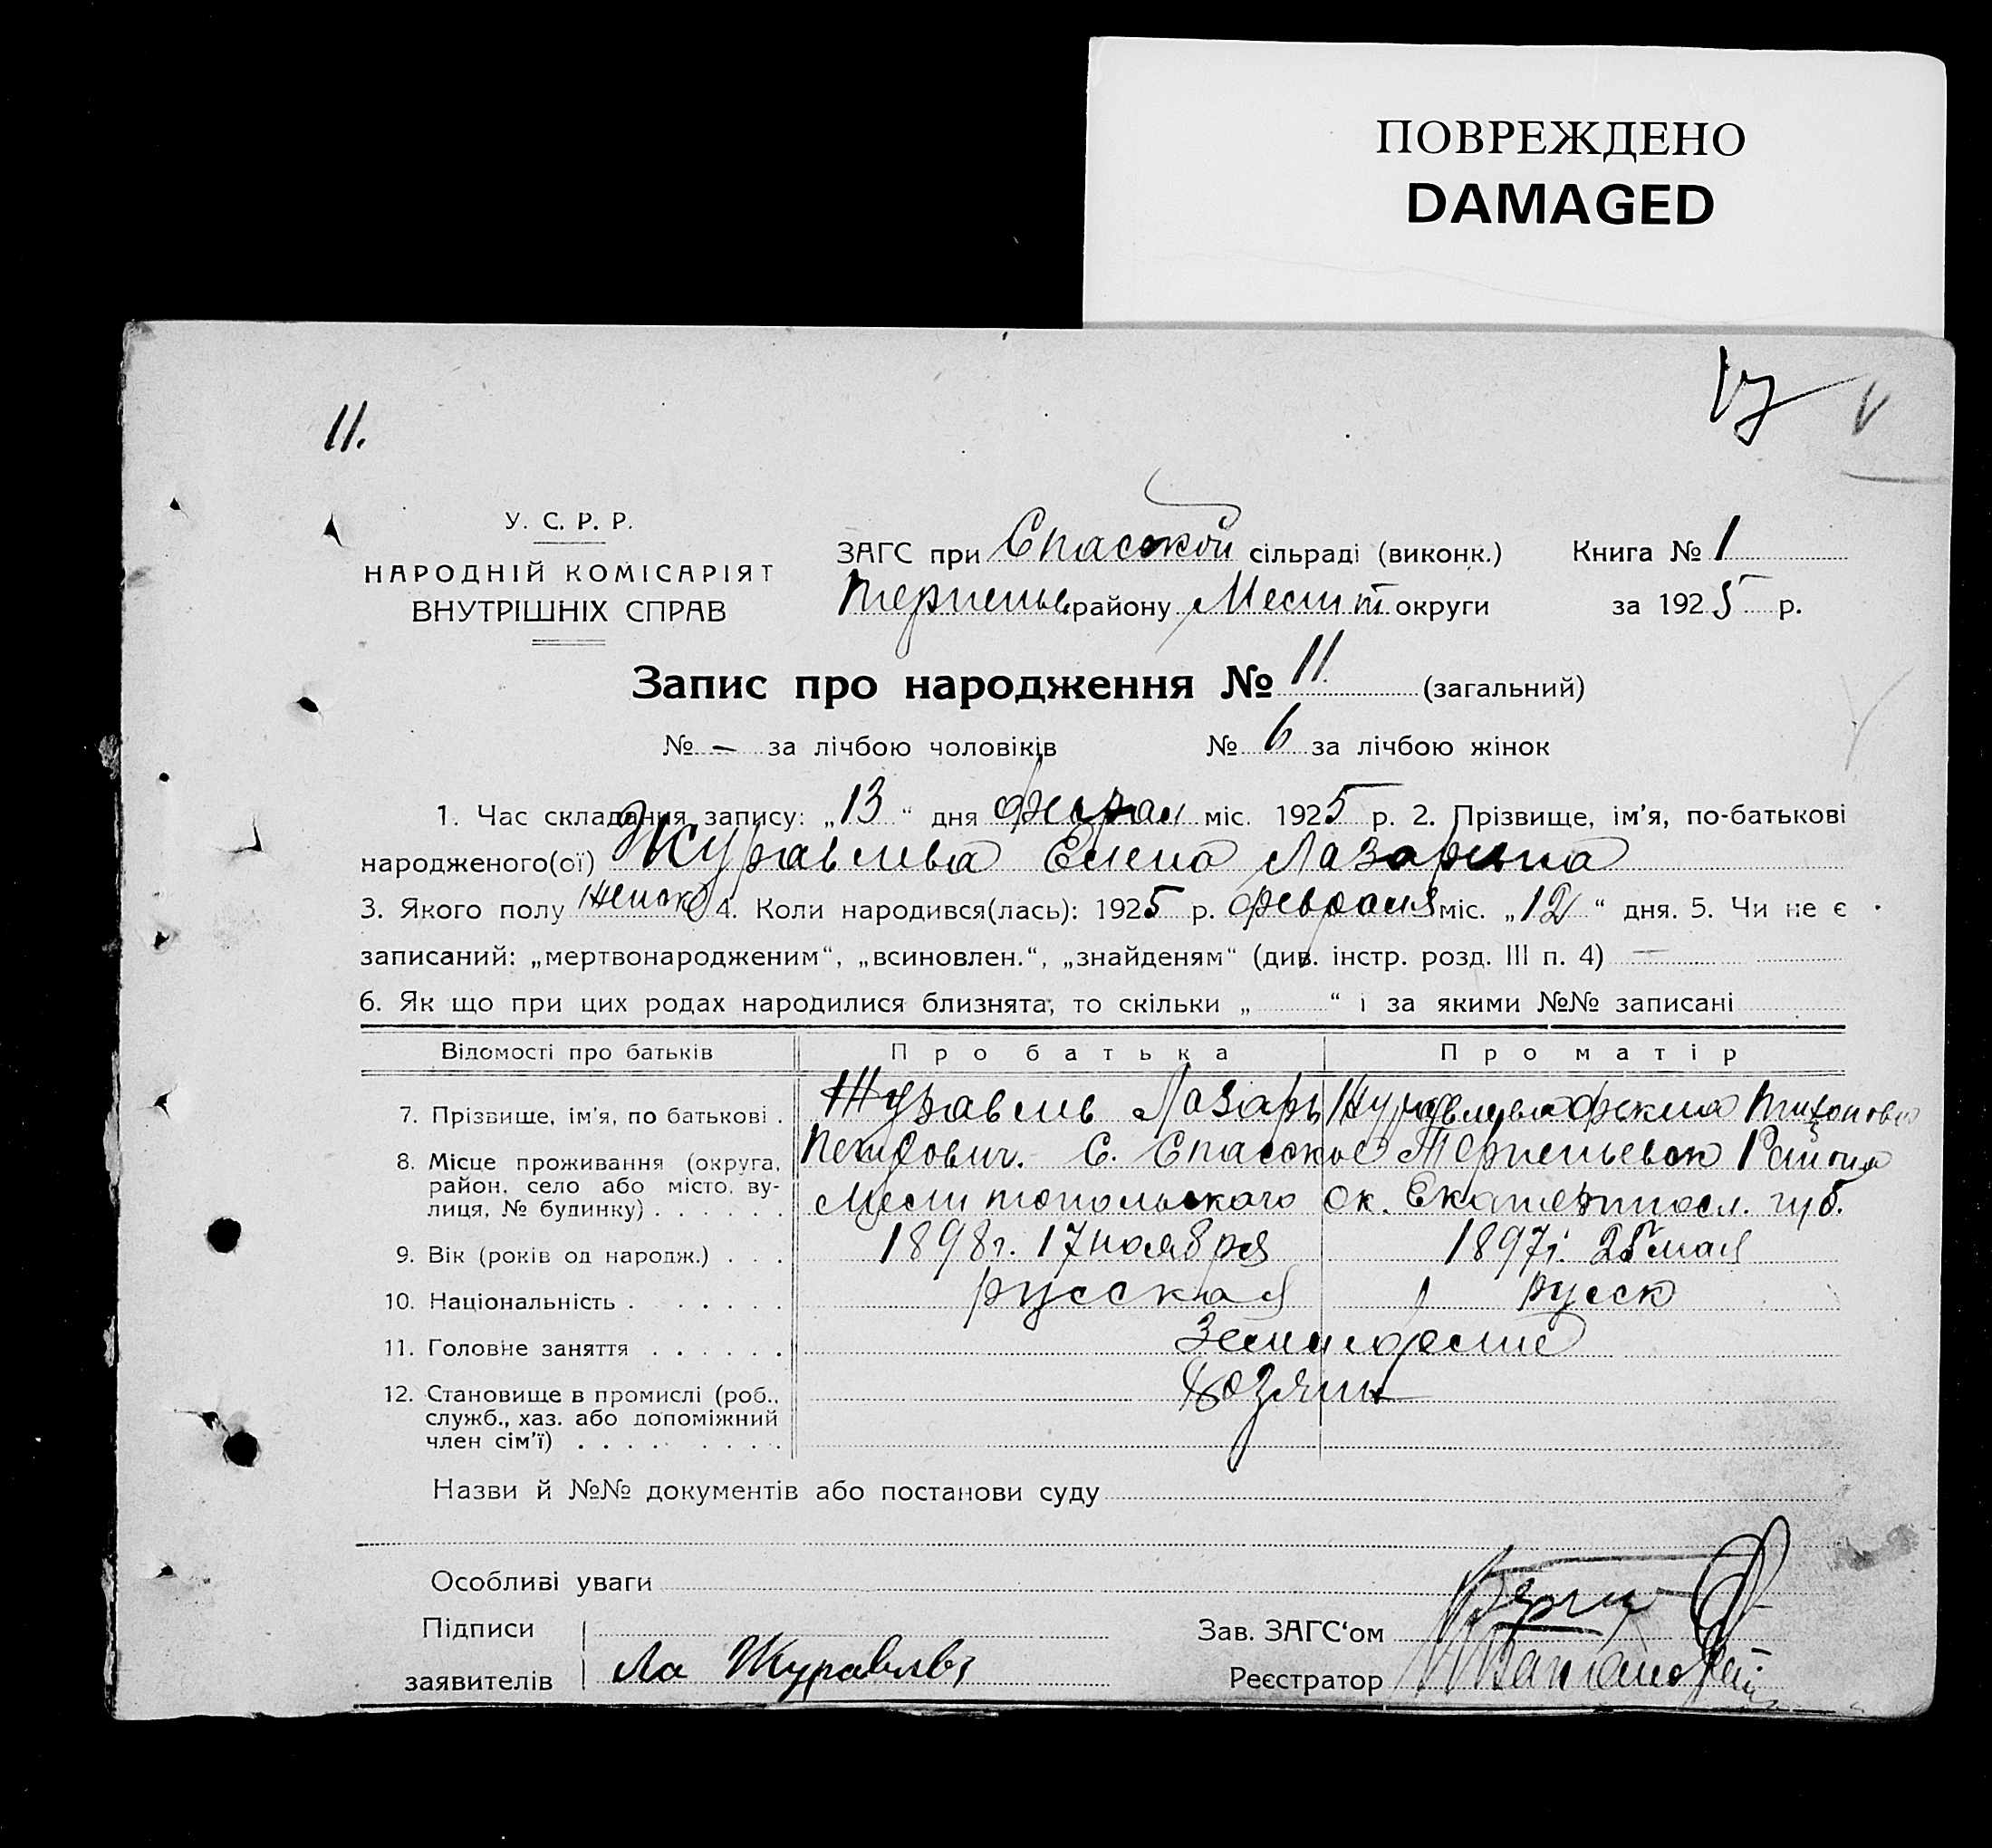 ПОВРЕЖДЕНО
DAMAGED
11.
У. С. Р. Р.
НАРОДНІЙ КОМІСАРІЯТ
ВНУТРІШНІХ СПРАВ
ЗАГС при Спасской сільраді (виконк.) Книга № 1
Терпеньев району Мелит округи за 1925 р.
Запис про народження № 11. (загальний)
№ – за лічбою чоловіків № 6 за лічбою жінок
1. Час складання запису: „13“ дня феврал міс. 1925 р. 2. Прізвище, ім’я, по-батькові
народженого(ої) Журавлева Елена Лазаревна
3. Якого полу женско 4. Коли народився(лась): 1925 р. февраля міс. „12“ дня. 5. Чи не є
записаний: „мертвонародженим“, „всиновлен.“, „знайденям“ (див. інстр. розд. III п. 4) —
6. Як що при цих родах народилися близнята, то скільки „ “ і за якими №№ записані
Відомості про батьків Про батька Про матір
7. Прізвище, ім’я, по батькові . Журавель Лазарь Журавлева Фекла Тихонова
8. Місце проживання (округа, Петрович. С. Спасское Терпеньевск Района
район, село або місто, ву-
лиця, № будинку) . . . . . . Мелитопольского ок. Екатериносл. губ.
9. Вік (років од народж.) . . . 1898г. 17 ноября 1897г. 25 мая
10. Національність . . . . . . . русская русск
11. Головне заняття . . . . . . Земледелие
12. Становище в промислі (роб., Хозяин
служб., хаз. або допоміжний
член сім’ї) . . . . . . . . .
Назви й №№ документів або постанови суду
Особливі уваги
Підписи
Зав. ЗАГС‘ом
заявителів Ла Журавлвъ
Реєстратор